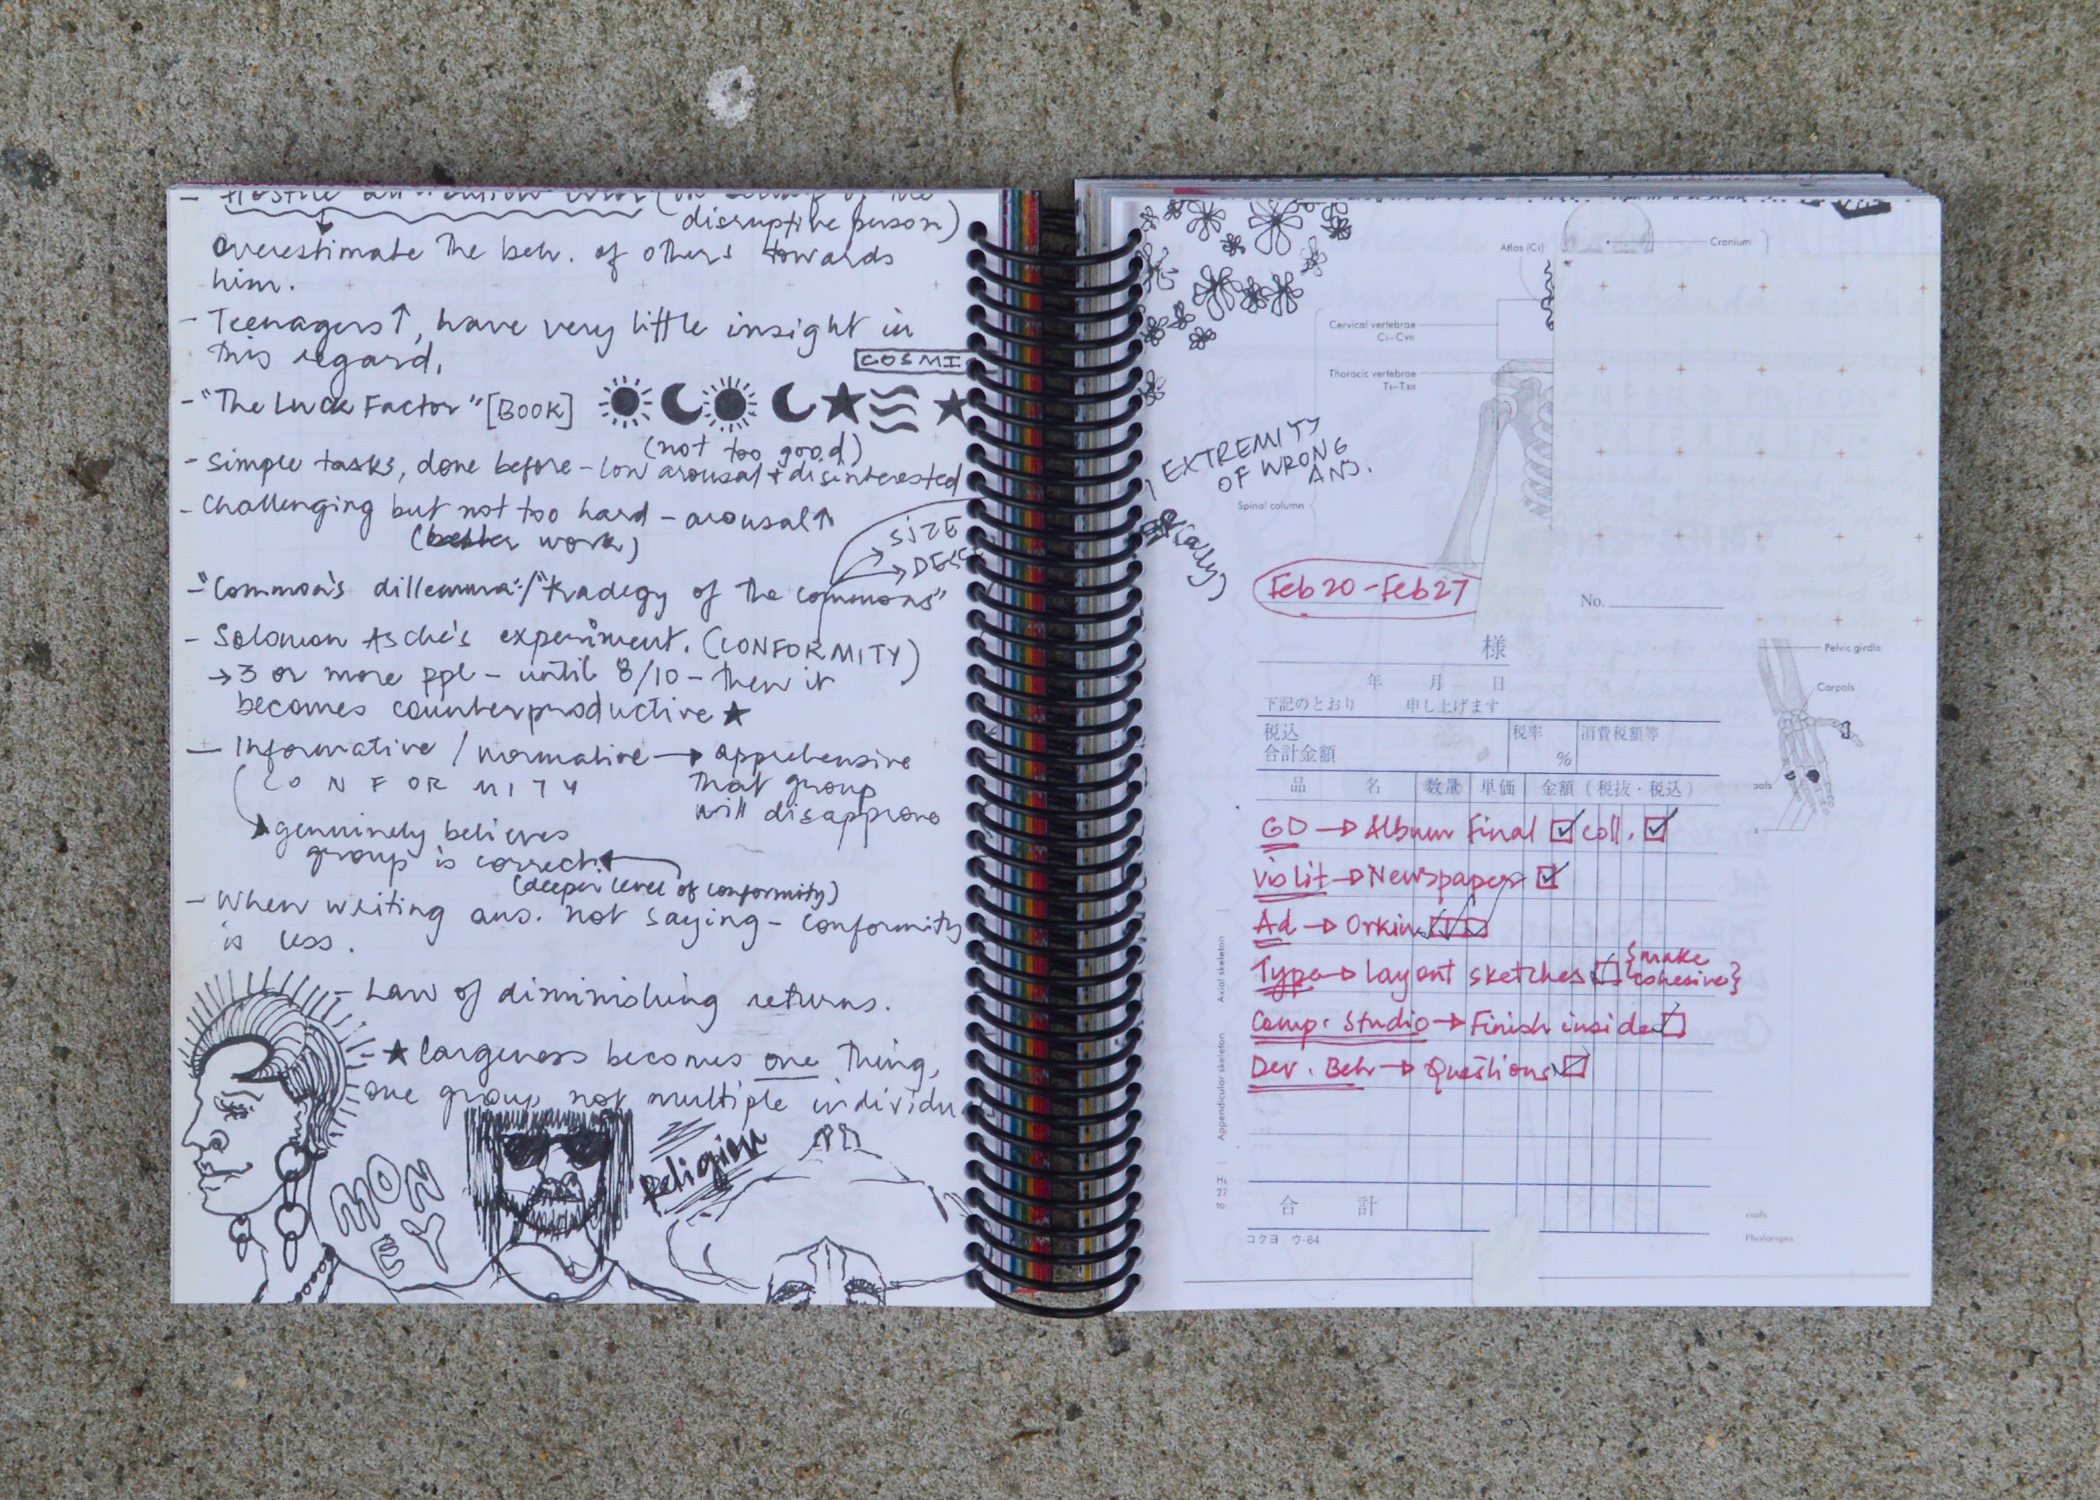 - Hostile attribution error (in
disruptive person)
overestimate the beh. of others towards
him.
- Teenagers↑, have very little insight in
this regard.
COSMI
- "The Luck Factor" [BOOK]
(not too good)
- Simple tasks, done before - low arousal + disinterested
- Challenging but not too hard - arousal↑
(better work)
SIZE
DES
- "Common's dillemma"/"tradegy of the commons"
- Solomon Asche's experiment. (CONFORMITY)
→ 3 or more ppl - until 8/10 - then it
becomes counterproductive ★
- Informative / normative → apprehensive
CONFORMITY that group
will disapprove
genuinely believes
group is correct.
(deeper level of conformity)
- When writing ans. not saying - conformity
is less.
- Law of diminishing returns.
★ largeness becomes one thing,
one group not multiple individu
MONEY
Religion
Atlas (C1)
Cranium
Cervical vertebrae
C1–CVII
Thoracic vertebrae
T1–TXII
EXTREMITY
OF WRONG
ANS.
Spinal column
Feb 20 - Feb 27
No.
様
Pelvic girdle
年 月 日
Carpals
下記のとおり 申し上げます
税込
合計金額 税率 % 消費税額等
品 名 数量 単価 金額 (税抜・税込)
GD → Album Final ☑ coll. ☑
Vis lit → Newspaper ☑
Ad → Orkin
Type → layout sketches ☑ {make
cohesive}
Comp. Studio → Finish inside ☑
Dev. Beh → Questions ☑
Axial skeleton
Appendicular skeleton
合 計
コクヨ ウ-64
rsals
Phalanges